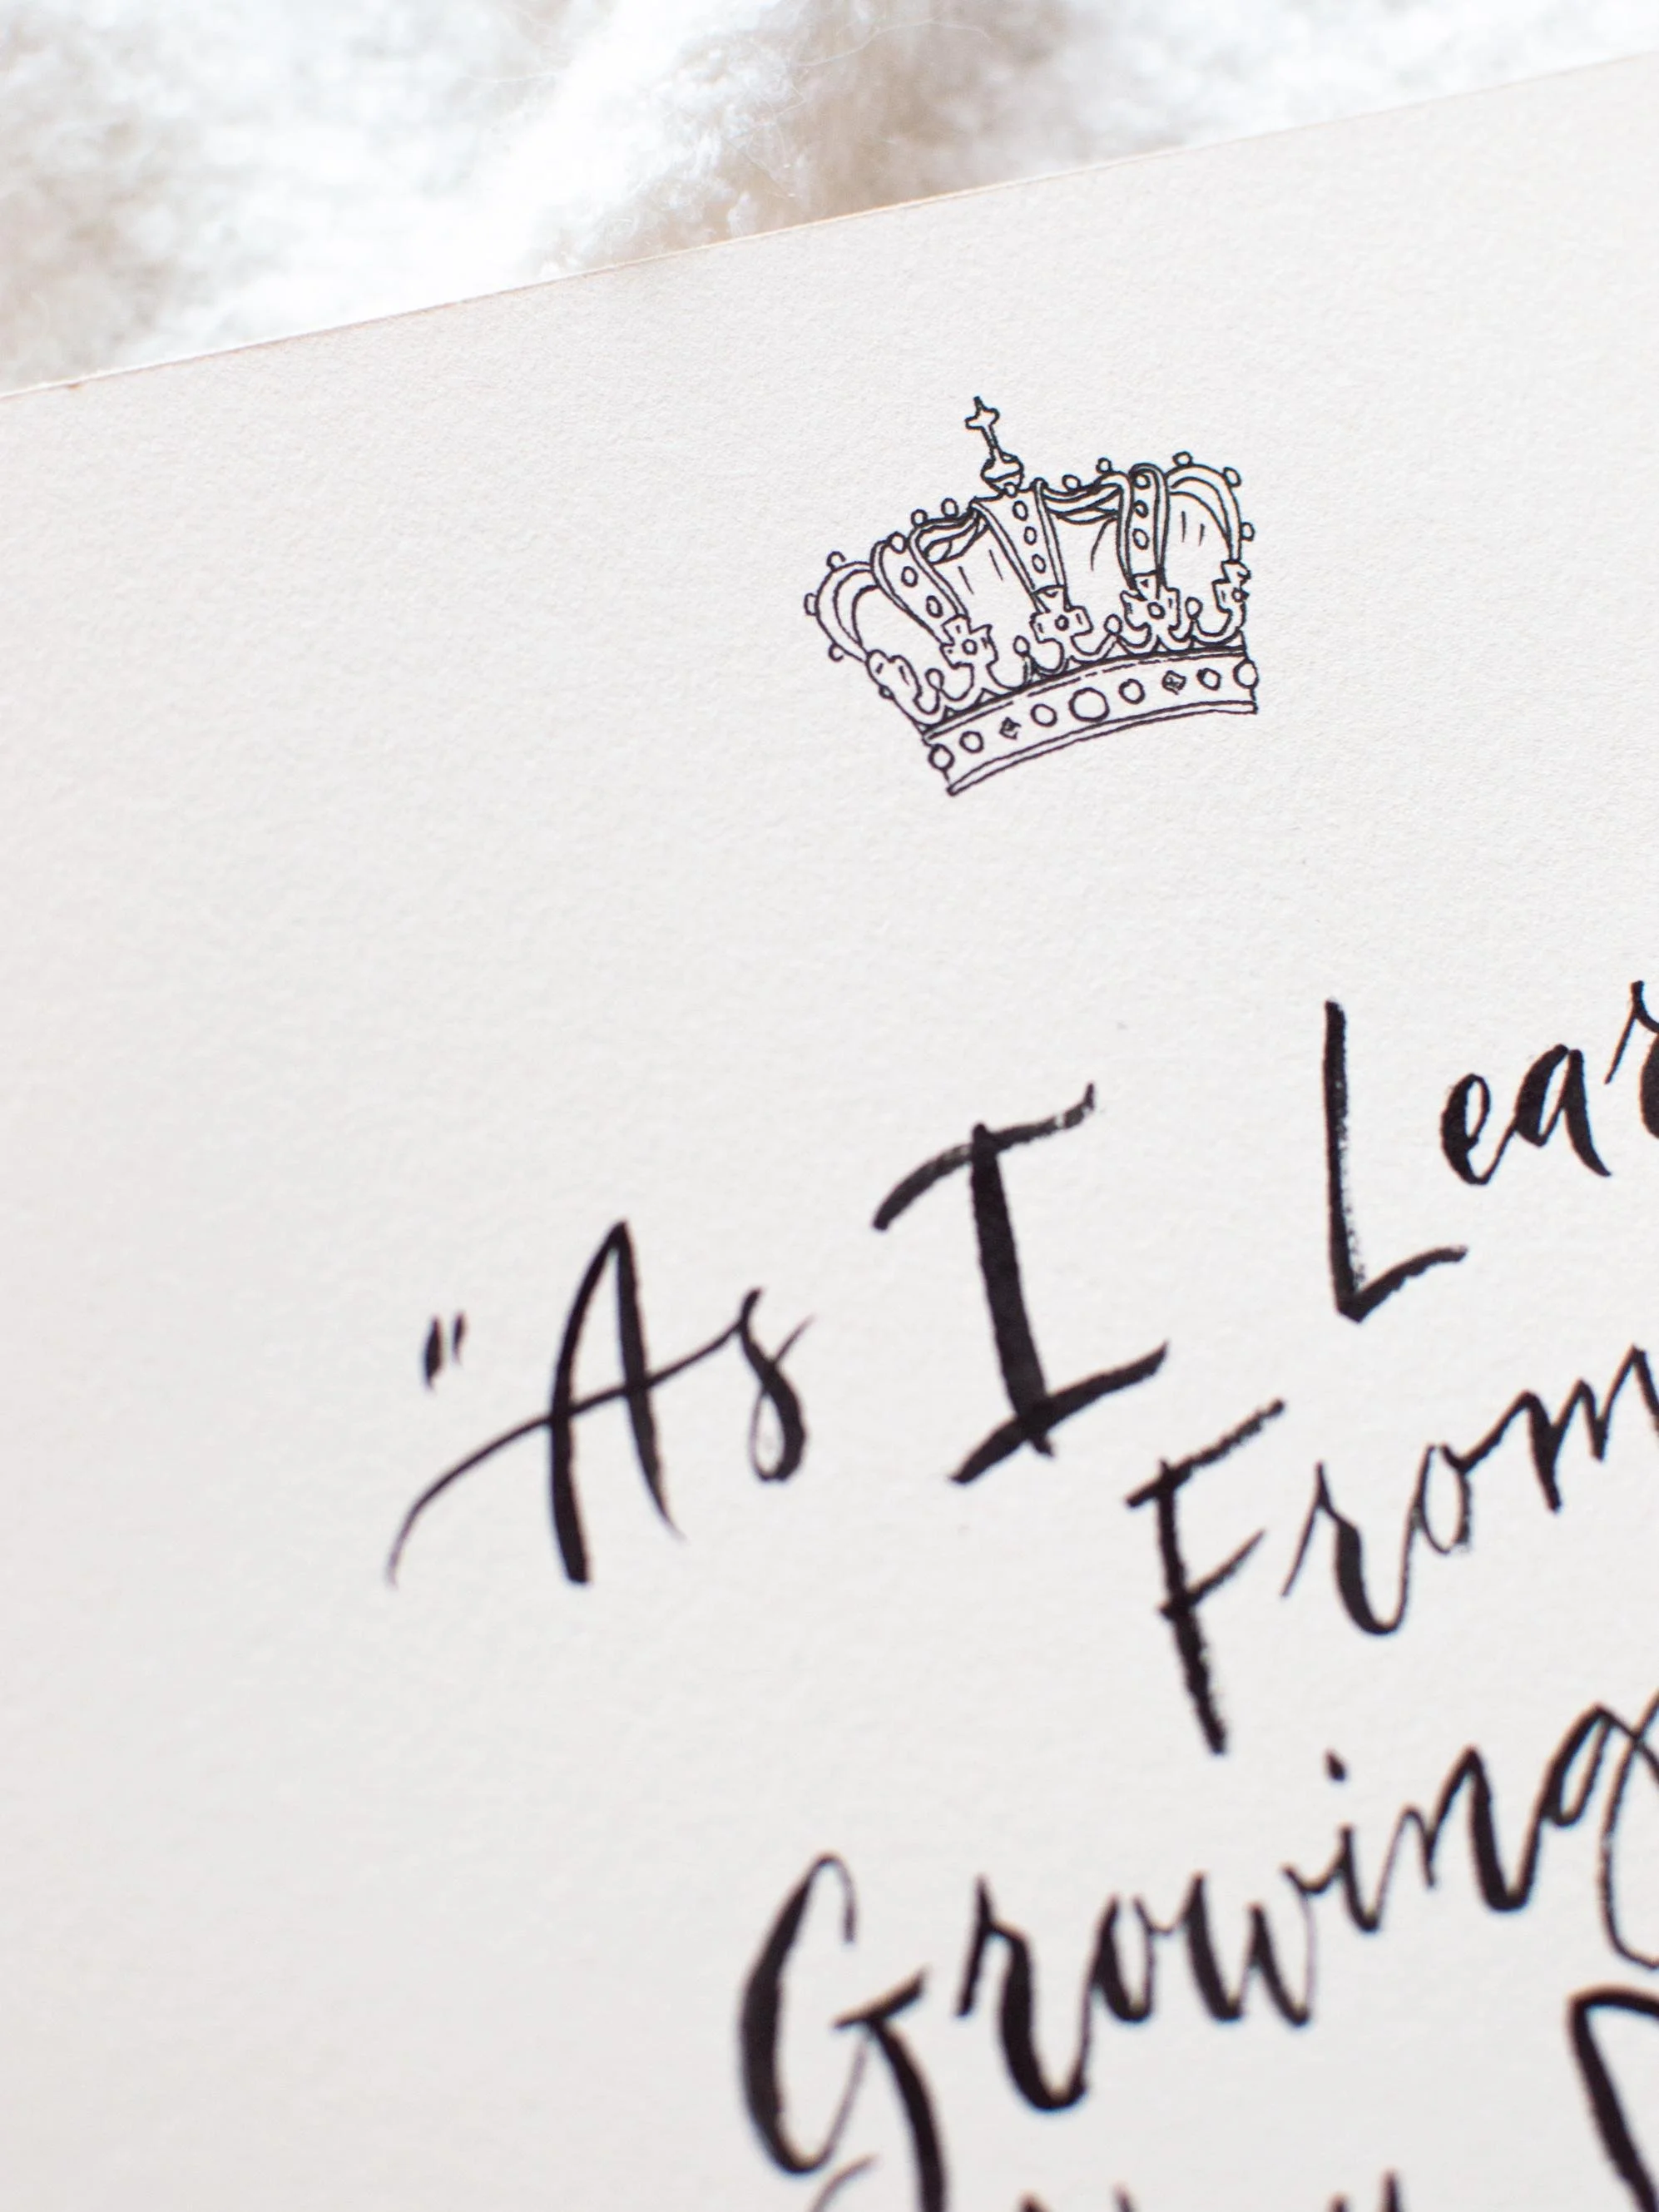 "As I Lear
From
Growing